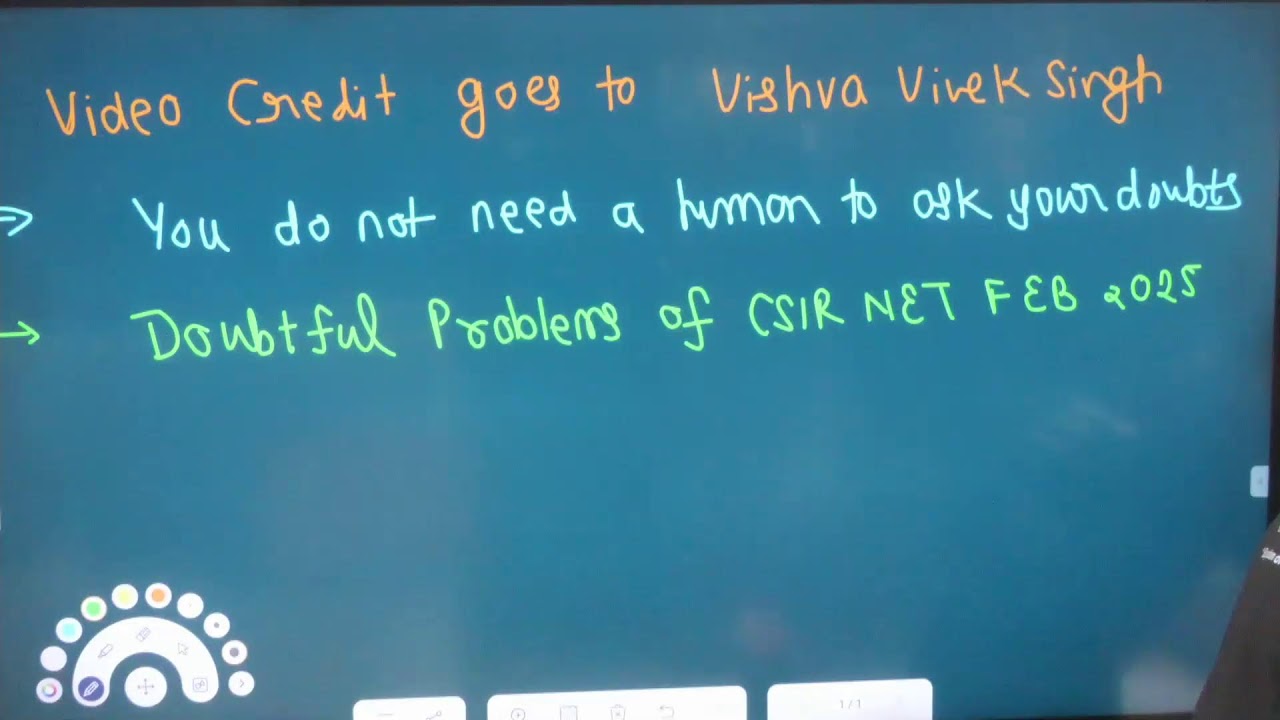 Video Credit goes to Vishva Vivek Singh
⇒ You do not need a human to ask your doubts
→ Doubtful Problems of CSIR NET FEB 2025
1/1